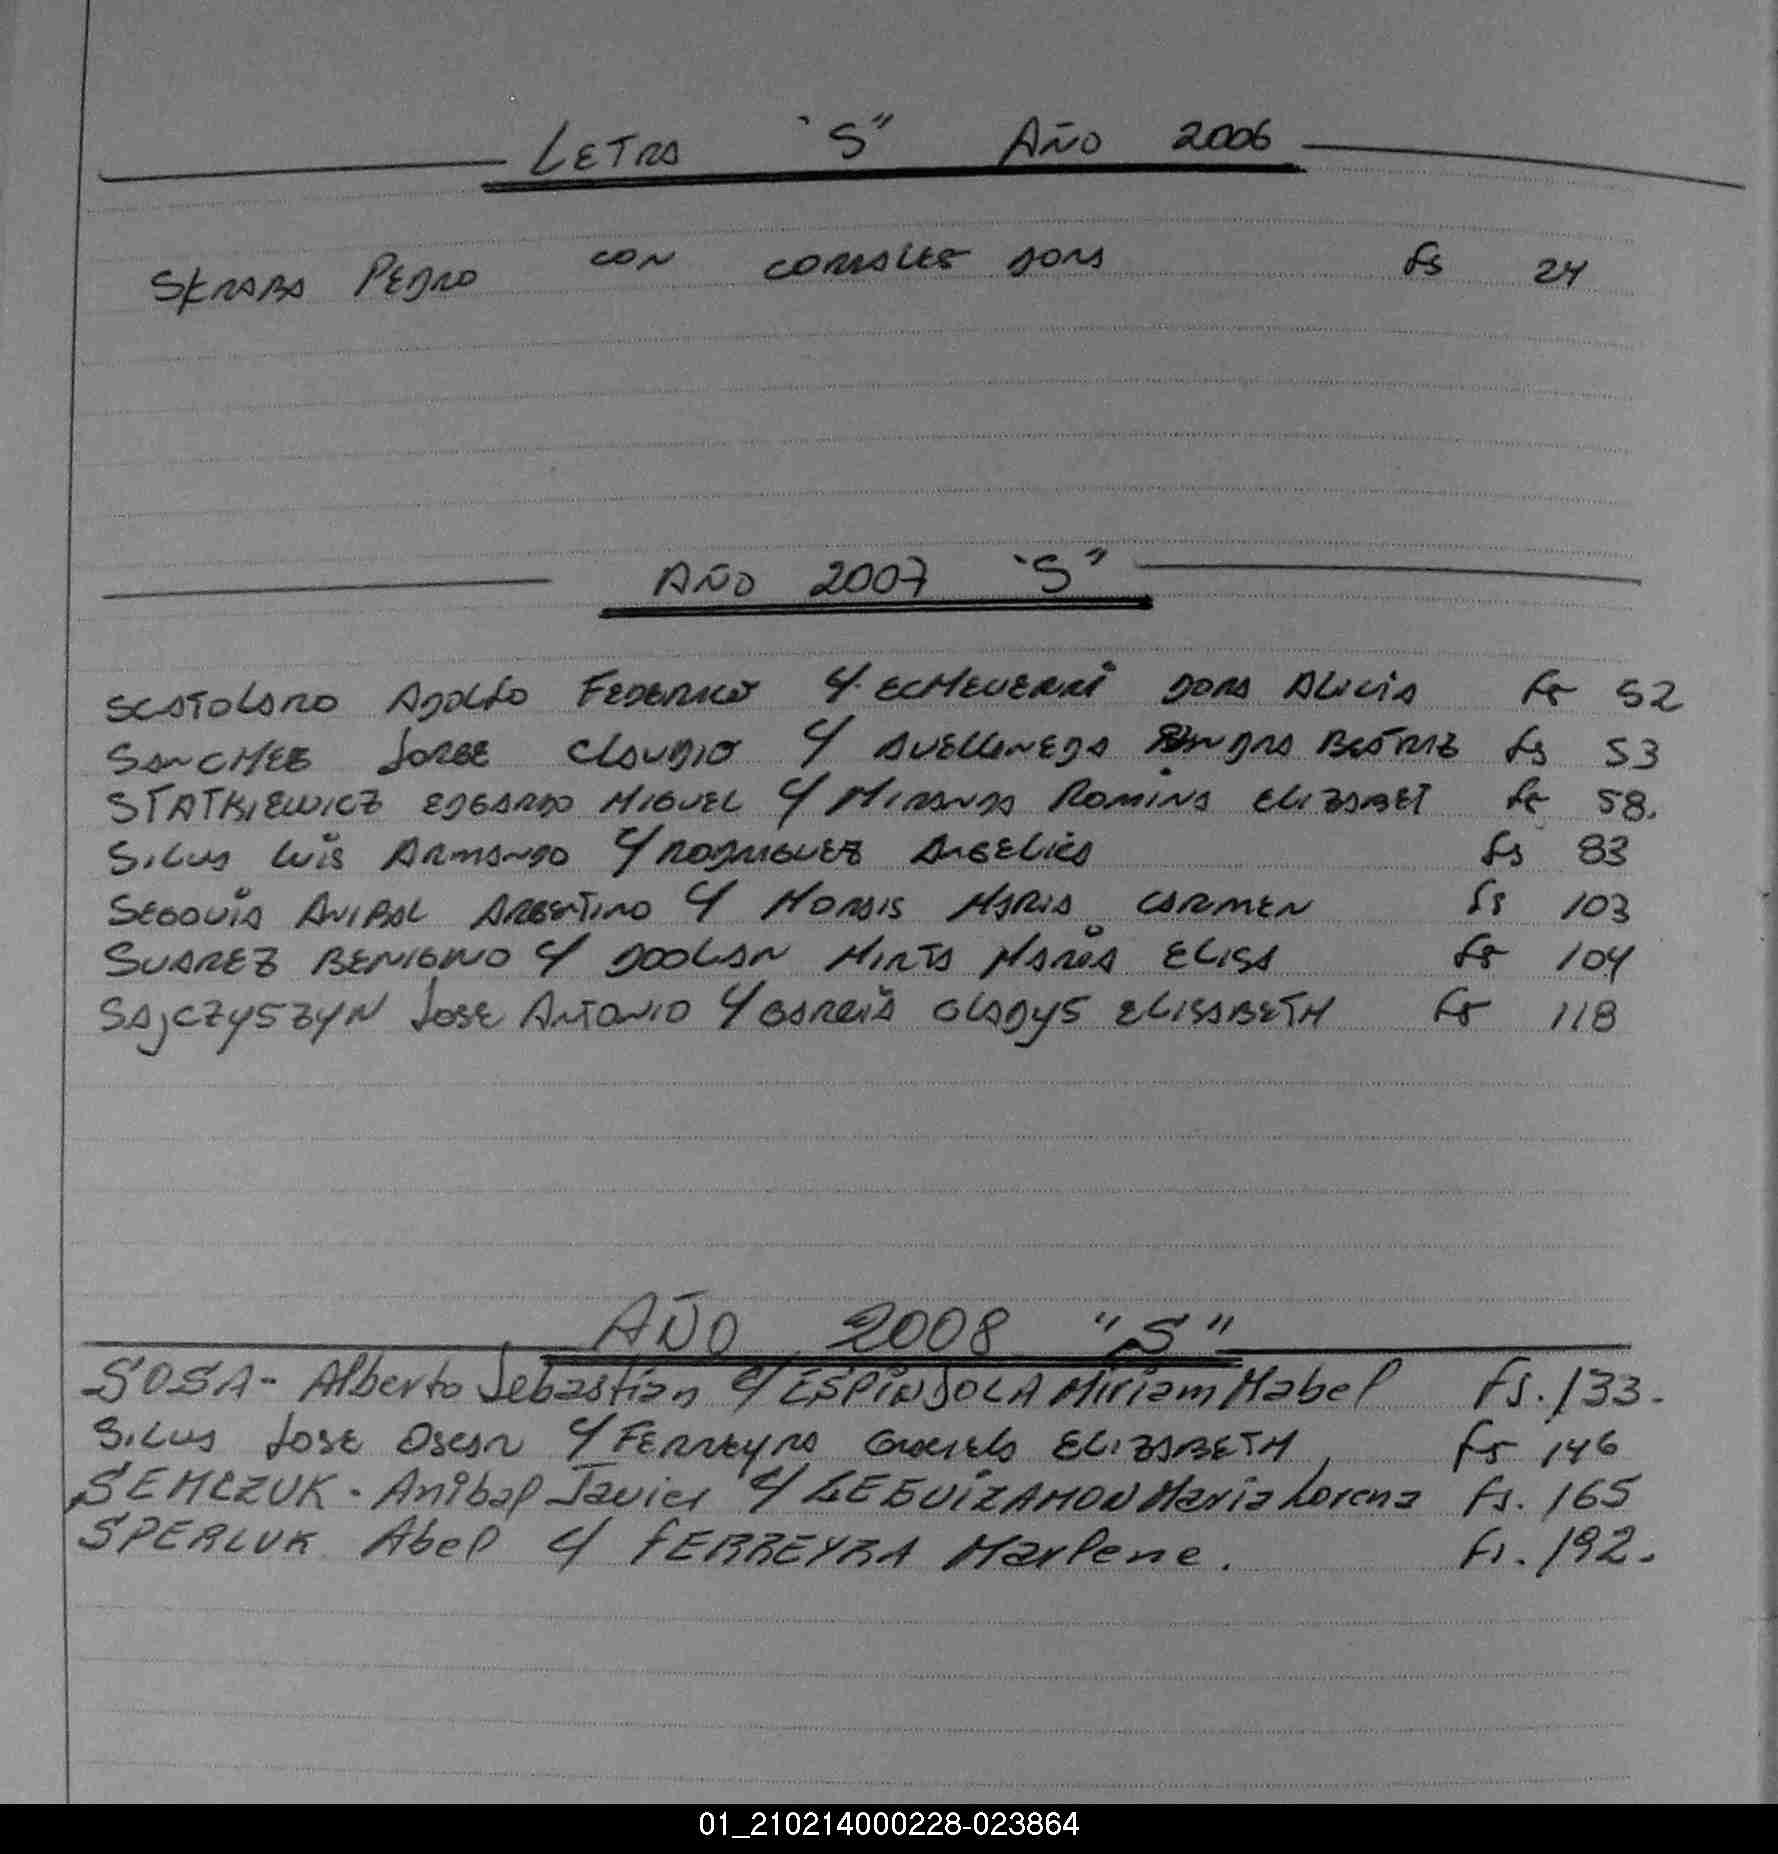 LETRA "S" AÑO 2006
SKRABA PEDRO CON CORRALES DORA fs 24
AÑO 2007 "S"
SCATOLARO ADOLFO FEDERICO C/ ECHEVERRI DORA ALICIA fs 52
SANCHEZ JORGE CLAUDIO C/ AVELLANEDA BEATRIZ fs 53
STATKIEWICZ EDGARDO MIGUEL C/ MIRANDA ROMINA ELIZABET fs 58.
SILUS LUIS ARMANDO C/ RODRIGUEZ ANGELICA fs 83
SEGOVIA ANIBAL ARGENTINO C/ MORAIS MARIA CARMEN fs 103
SUAREZ BENIGNO C/ DOOLAN MIRTA MARIA ELISA fs 104
SAJCZYSZYN JOSE ANTONIO C/ GARCIA GLADYS ELISABETH fs 118
AÑO 2008 "S"
SOSA - Alberto Sebastian C/ ESPINDOLA Miriam Mabel Fs. 133.
SILUS JOSE OSCAR C/ FERREYRA GRACIELA ELIZABETH fs 146
SEMCZUK - Anibal Javier C/ LEGUIZAMON Maria Lorena Fs. 165
SPERLUK Abel C/ FERREYRA Marlene. Fs. 192.
01_210214000228-023864